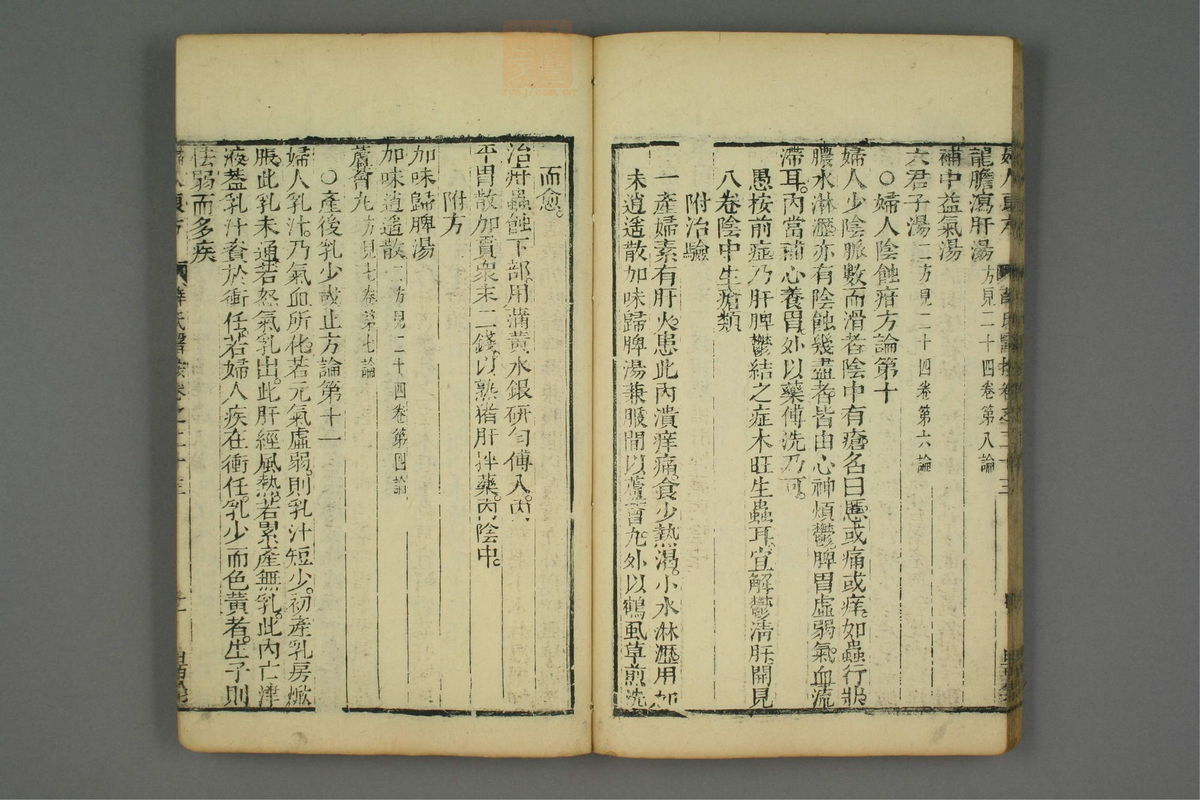 龍膽瀉肝湯方見二十四卷第八論
補中益氣湯
六君子湯二方見二十四卷第六論
○婦人陰蝕瘡方論第十
婦人少陰脈數而滑者陰中有瘡名曰䘌或痛或痒如蟲行狀
膿水淋瀝亦有陰蝕幾盡者皆由心神煩鬱脾胃虛弱氣血流
滯耳內當補心養胃外以藥傅洗乃可
愚按前症乃肝脾鬱結之症木旺生蟲耳宜解鬱清肝開見
八卷陰中生瘡類
附治驗
一產婦素有肝火患此內潰痒痛食少熱渴小水淋瀝用加
未逍遥散加味歸脾湯兼服間以蘆薈丸外以鶴虱草煎洗
而愈
治疳蟲蝕下部用蒲黃水銀研勻傅入內
平胃散加貫衆末二錢以熟猪肝拌藥內陰中
附方
加味歸脾湯
加味逍遥散二方見二十四卷第四論
蘆薈丸方見七卷第七論
○產後乳少或止方論第十一
婦人乳汁乃氣血所化若元氣虛弱則乳汁短少初產乳房焮
脹此乳未通若怒氣乳出此肝經風熱若累產無乳此內亡津
液葢乳汁資於衝任若婦人疾在衝任乳少而色黃者生子則
怯弱而多疾